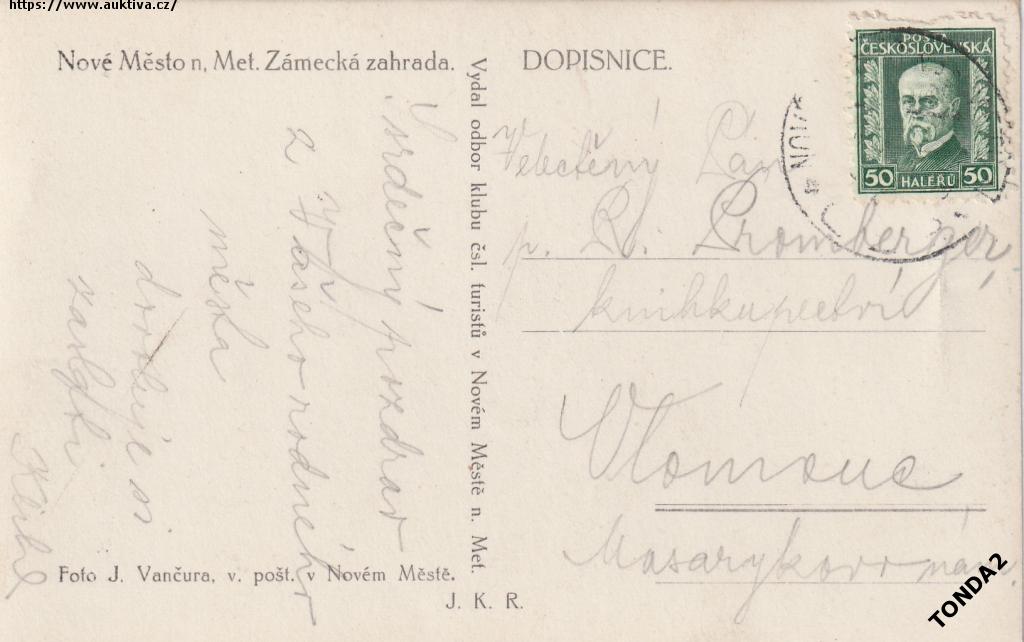 https://www.auktiva.cz/
Nové Město n, Met. Zámecká zahrada.
DOPISNICE.
POŠTA
ČESKOSLOVENSKÁ
50 HALÉŘŮ 50
Velectěný Pán
p. R. Promberger,
knihkupectví
Olomouc
Masarykovo nám.
Srdečný pozdrav
z Vašeho rodného
města
dovoluje si
zaslati
Vydal odbor klubu čsl. turistů v Novém Městě n. Met.
Foto J. Vančura, v. pošt. v Novém Městě.
J. K. R.
TONDA2